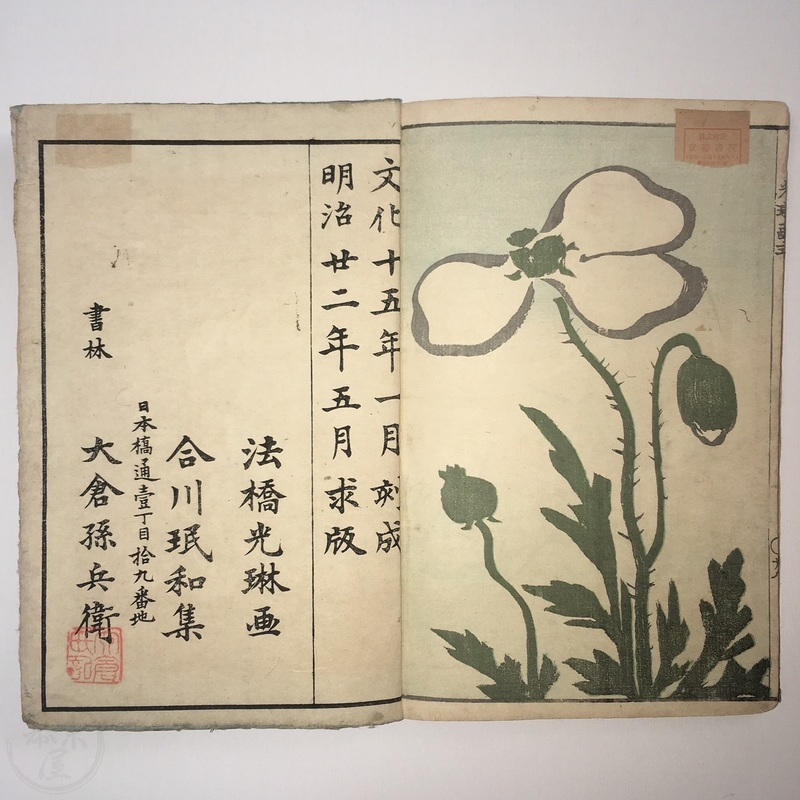 文化十五年一月刻成
明治廿二年五月求版
法橋光琳画
合川珉和集
日本橋通壹丁目拾九番地
大倉孫兵衛
書林